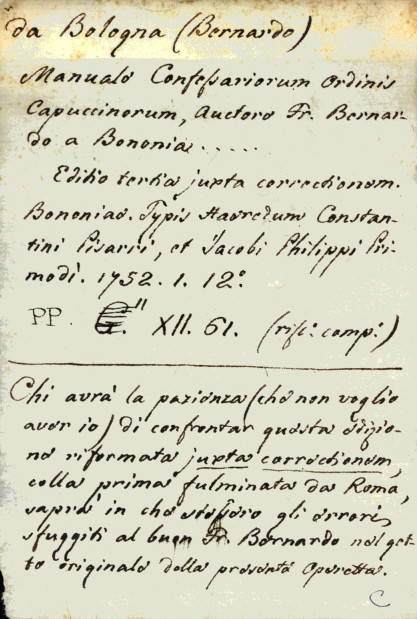 da Bologna (Bernardo)
Manuale Confessariorum Ordinis
Capuccinorum, Auctore Fr. Bernar-
do a Bononia.....
Editio tertia juxta correctionem.
Bononiae. Typis Haeredum Constan-
tini Pisarri, et Jacobi Philippi Pri-
modì. 1752. 1. 12º
PP. XII. 61. (risc: comp:)
Chi avrà la pazienza (che non voglio
aver io) di confrontar questa edizio-
ne riformata juxta correctionem,
colla prima fulminata da Roma,
saprà in che stessero gli errori,
sfuggiti al buon Fr. Bernardo nel get-
to originale della presente Operetta.
C